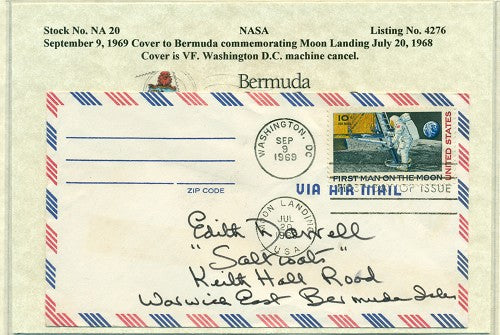 Stock No. NA 20 NASA Listing No. 4276
September 9, 1969 Cover to Bermuda commemorating Moon Landing July 20, 1968
Cover is VF. Washington D.C. machine cancel.
Bermuda
WASHINGTON, DC
SEP
9
1969
10
UNITED STATES
FIRST MAN ON THE MOON
FIRST DAY OF ISSUE
ZIP CODE
VIA AIR MAIL
MOON LANDING
JUL
20
USA
Edith Darrell
"Saltwats"
Keith Hall Road
Warwick East Bermuda Isles